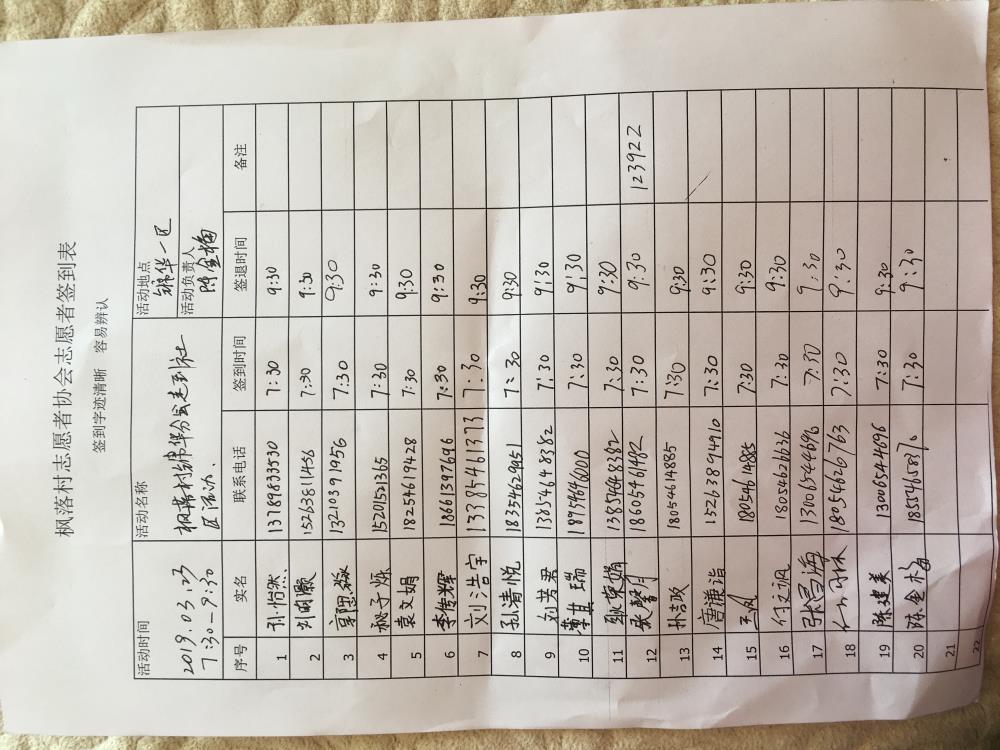 枫落村志愿者协会志愿者签到表
签到字迹清晰 容易辨认
活动时间 活动名称 活动地点
2019.03.23 枫落村锦华分会走到社 锦华一区
7:30-9:30 区活动. 活动负责人 陈金梅
序号 实名 联系电话 签到时间 签退时间 备注
1 孙怡然 13789833530 7:30 9:30
2 刘明灏 15263811456 7:30 9:30
3 13210391956 7:30 9:30
4 15201531365 7:30 9:30
5 袁文娟 18254619428 7:30 9:30
6 李传辉 18661397696 7:30 9:30
7 刘浩宇 13385461373 7:30 9:30
8 孙清悦 18354629451 7:30 9:30
9 刘芳君 13854648382 7:30 9:30
10 7:30 9:30
11 13854648382 7:30 9:30
12 张馨月 18605461482 7:30 9:30 123922
13 18054614885 7:30 9:30
14 唐谦诣 15263894910 7:30 9:30
15 18054614885 7:30 9:30
16 付文飒 18054626636 7:30 9:30
17 张昌海 13006544696 7:30 9:30
18 18054626763 7:30 9:30
19 陈建美 13006544696 7:30 9:30
20 陈金梅 7:30 9:30
21
22